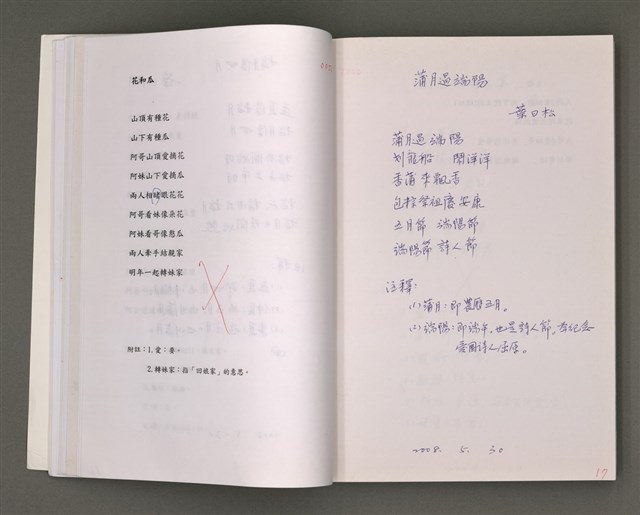 花和瓜
山頂有種花
山下有種瓜
阿哥山頂愛摘花
阿妹山下愛摘瓜
兩人相睹眼花花
阿哥看妹像朵花
阿妹看哥像憨瓜
兩人牽手結親家
明年一起轉妹家
附註：1.愛：要。
2.轉妹家：指「回娘家」的意思。
蒲月過端陽
葉日松
蒲月過端陽
划龍船 鬧洋洋
香蒲來飄香
包粽祭祖慶安康
五月節 端陽節
端陽節 詩人節
注釋：
(1)蒲月：即農曆五月。
(2)端陽：即端午，也是詩人節。為紀念
愛國詩人屈原。
2008. 5. 30
17